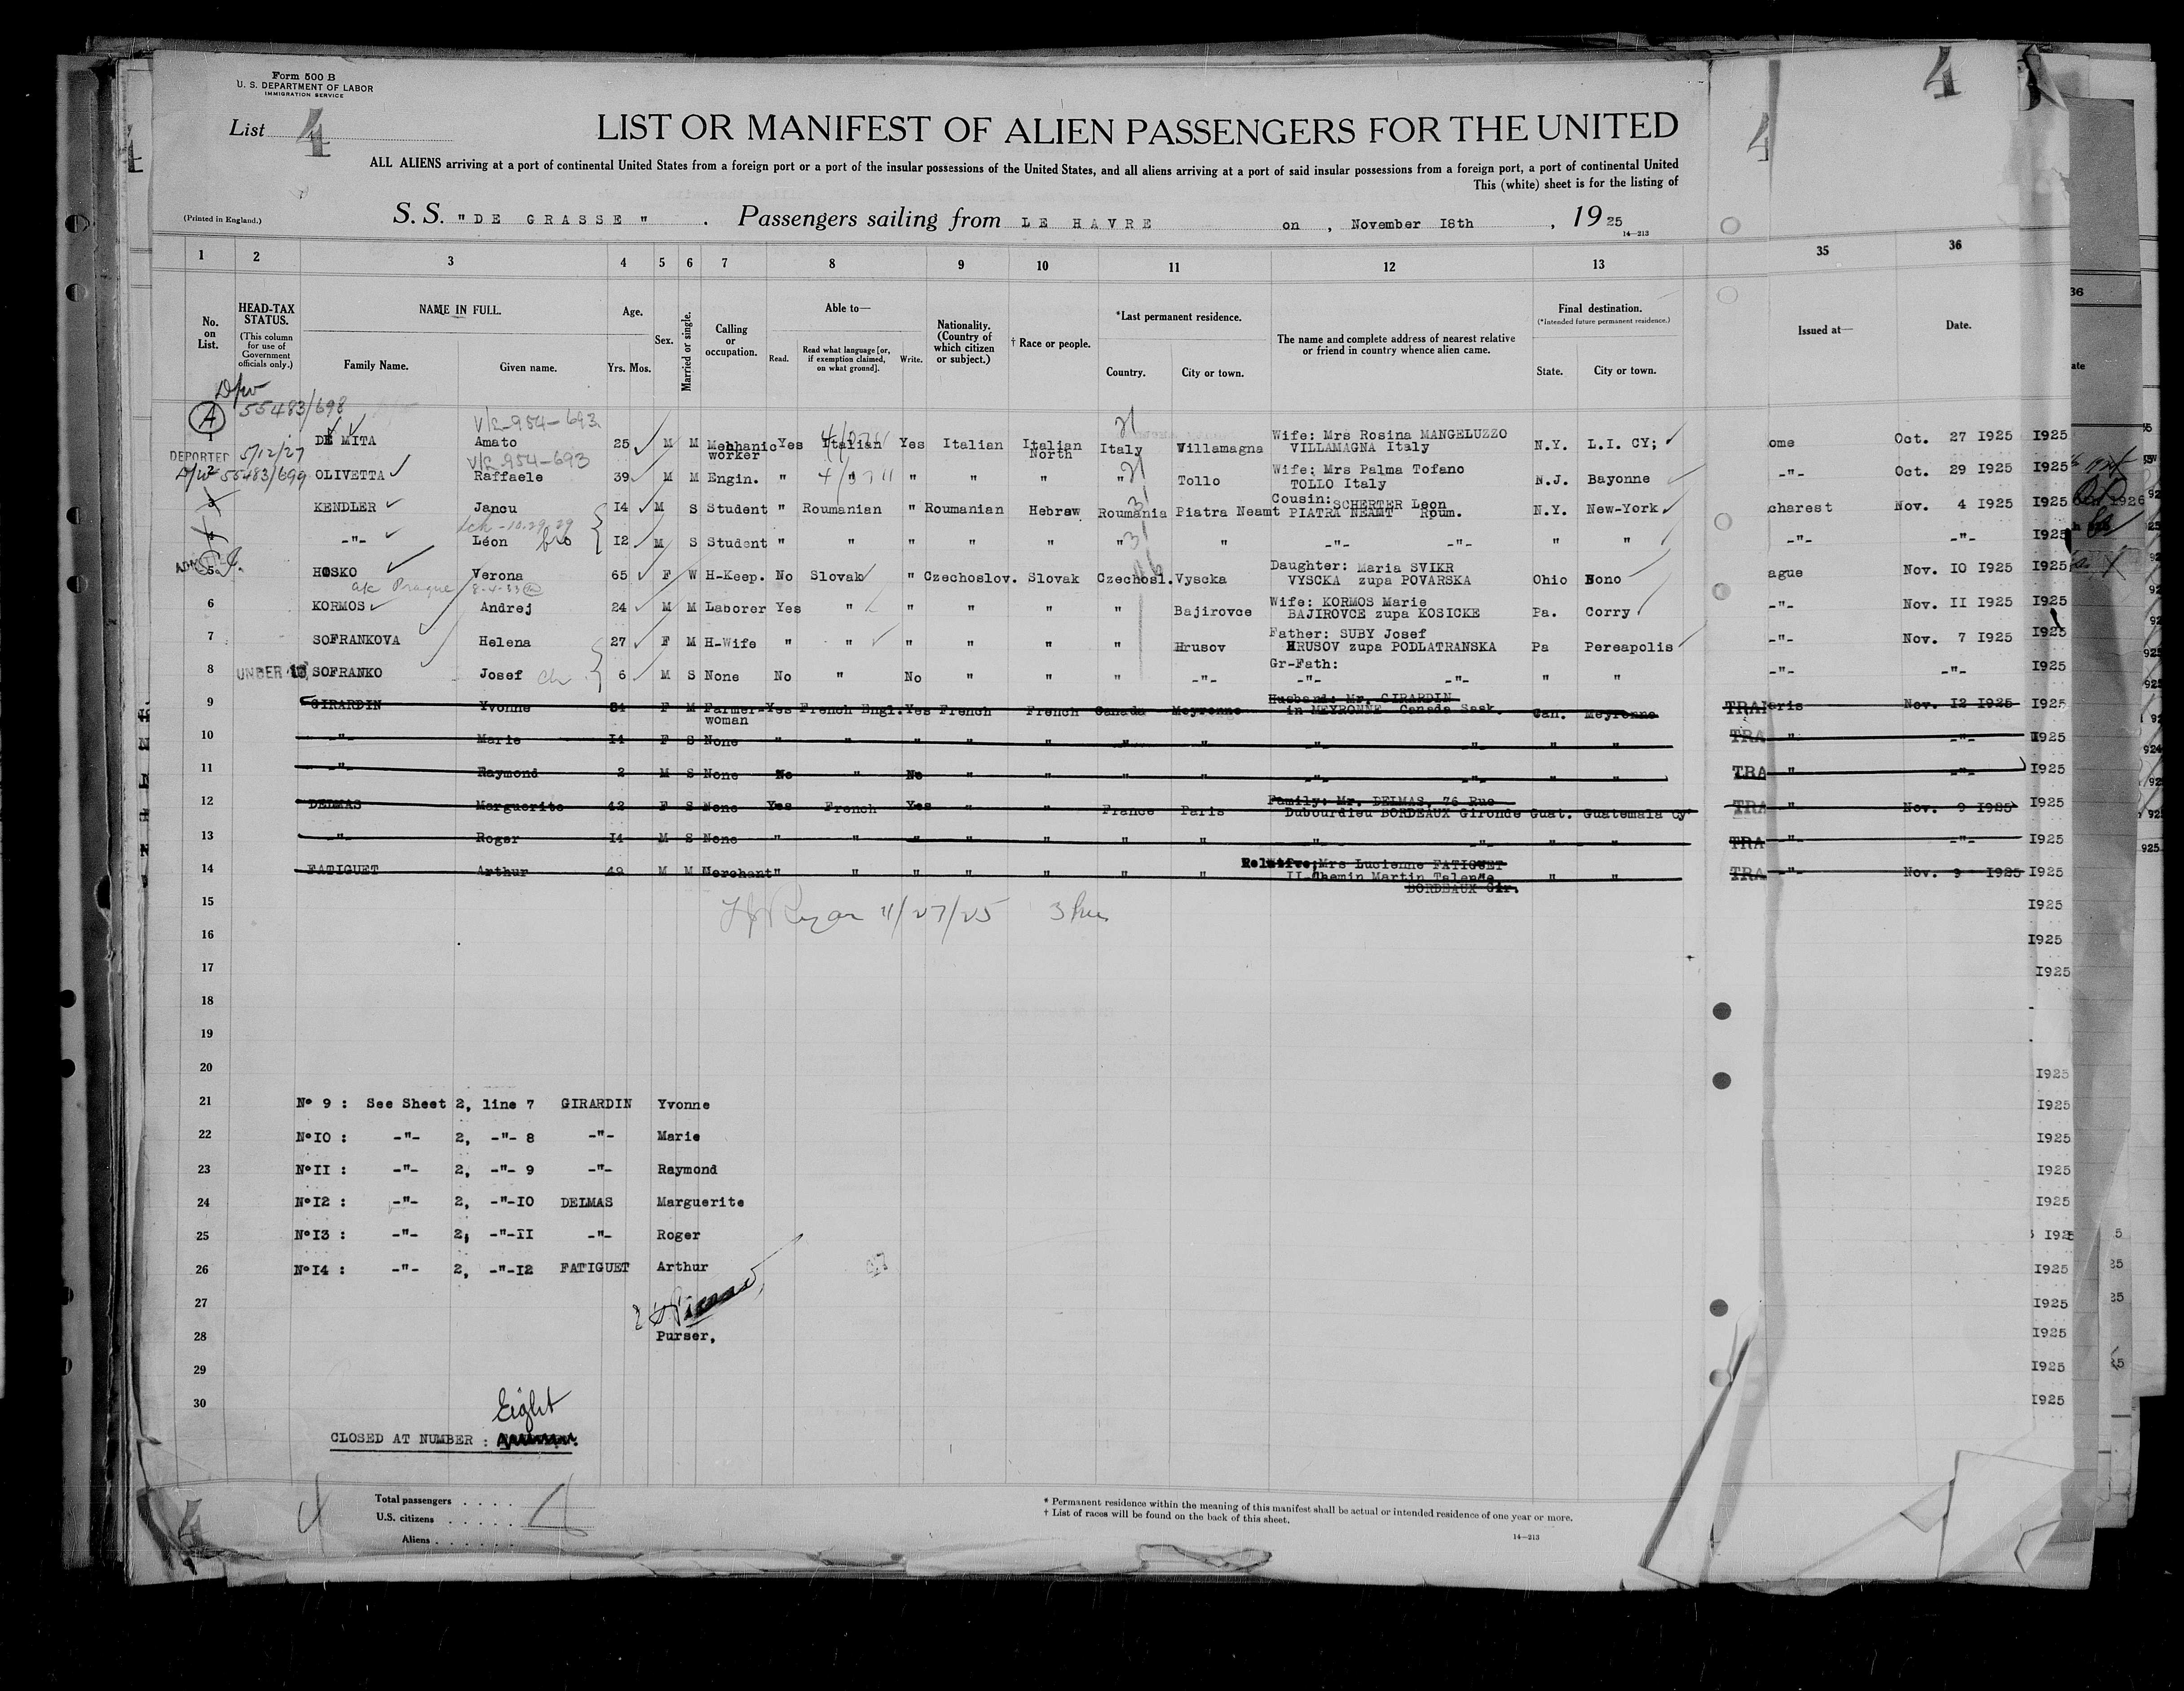 Form 500 B
U. S. DEPARTMENT OF LABOR
IMMIGRATION SERVICE
List 4
LIST OR MANIFEST OF ALIEN PASSENGERS FOR THE UNITED
ALL ALIENS arriving at a port of continental United States from a foreign port or a port of the insular possessions of the United States, and all aliens arriving at a port of said insular possessions from a foreign port, a port of continental United
This (white) sheet is for the listing of
(Printed in England.)
S. S. "DE GRASSE" . Passengers sailing from LE HAVRE on , November I8th , 1925
14—213
1 2 3 4 5 6 7 8 9 10 11 12 13 35 36
No. on List. HEAD-TAX STATUS. (This column for use of Government officials only.) NAME IN FULL. Family Name. Given name. Age. Yrs. Mos. Sex. Married or single. Calling or occupation. Able to— Read. Read what language [or, if exemption claimed, on what ground]. Write. Nationality. (Country of which citizen or subject.) † Race or people. *Last permanent residence. Country. City or town. The name and complete address of nearest relative or friend in country whence alien came. Final destination. (*Intended future permanent residence.) State. City or town. Issued at— Date.
A 55483/698 V/L-954-693
1 DE MITA Amato 25 M M Mechanic worker Yes Italian Yes Italian Italian North Italy Villamagna Wife: Mrs Rosina MANGELUZZO VILLAMAGNA Italy N.Y. L.I. CY; ome Oct. 27 I925
DEPORTED 5/12/27 V/L 954-693
2 55483/699 OLIVETTA Raffaele 39 M M Engin. " " " " " " Tollo Wife: Mrs Palma Tofano TOLLO Italy N.J. Bayonne -"- Oct. 29 I925
3 KENDLER Jancu I4 M S Student " Roumanian " Roumanian Hebraw Roumania Piatra Neamt Cousin: SCHERTER Leon PIATRA NEAMT Roum. N.Y. New-York charest Nov. 4 I925
4 -"- Léon bro I2 M S Student " " " " " " " -"- -"- " " -"- -"-
5 HOSKO Verona 65 F W H-Keep. No Slovak " Czechoslov. Slovak Czechosl. Vyscka Daughter: Maria SVIKR VYSCKA zupa POVARSKA Ohio Nono ague Nov. IO I925
6 KORMOS Andrej 24 M M Laborer Yes " " " " " Bajirovce Wife: KORMOS Marie BAJIROVCE zupa KOSICKE Pa. Corry -"- Nov. II I925
7 SOFRANKOVA Helena 27 F M H-Wife " " " " " " Hrusov Father: SUBY Josef HRUSOV zupa PODLATRANSKA Pa Pereapolis -"- Nov. 7 I925
8 UNDER SOFRANKO Josef ch 6 M S None No " No " " " -"- Gr-Fath: -"- -"- " " -"- -"-
9 GIRARDIN Yvonne F M Farmer-woman Yes French Engl. Yes French French Canada Meyronne Husband: Mr. GIRARDIN in MEYRONNE Canada Sask. Can. Meyronne TRA aris Nov. I2 I925
10 -"- Marie I4 F S None " " " " " " " -"- -"- " " TRA " -"-
11 -"- Raymond 2 M S None No " No " " " " -"- -"- " " TRA "
12 DELMAS Marguerite 42 F S None Yes French Yes " " France Paris Family: Mr. DELMAS, 76 Rue Dubourdieu BORDEAUX Gironde Guat. Guatemala Cy TRA " Nov. 9 I925
13 -"- Roger I4 M S None " " " " " " " " " " " TRA -"- -"-
14 FATIGUET Arthur 49 M M Merchant " " " " " " " Relative: Mrs Lucienne FATIGUET II-Chemin Martin Talence BORDEAUX Gir. " " TRA -"- Nov. 9 I925
15 11/27/25
16
17
18
19
20
21 No 9 : See Sheet 2, line 7 GIRARDIN Yvonne
22 No IO : -"- 2, -"- 8 -"- Marie
23 No II : -"- 2, -"- 9 -"- Raymond
24 No I2 : -"- 2, -"-IO DELMAS Marguerite
25 No I3 : -"- 2, -"-II -"- Roger
26 No I4 : -"- 2, -"-I2 FATIGUET Arthur
27
28 Purser,
29
30
Eight
CLOSED AT NUMBER :
Total passengers . . . .
U.S. citizens . . . . . 4
Aliens . . . . . .
* Permanent residence within the meaning of this manifest shall be actual or intended residence of one year or more.
† List of races will be found on the back of this sheet.
14—213